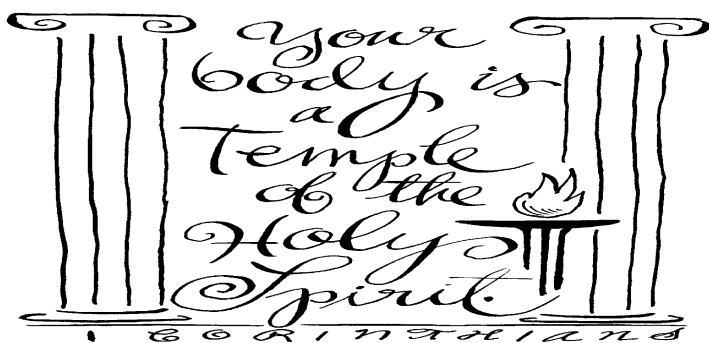 Your
body is
a
Temple
of the
Holy
Spirit.
1 CORINTHIANS